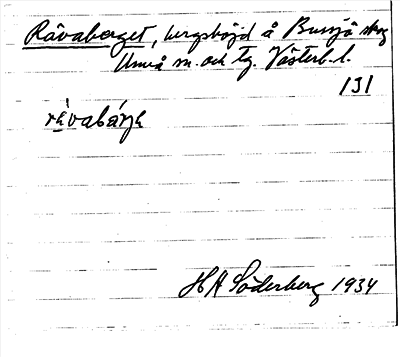 Råvaberget, bergshöjd å Bussjö skog
Umeå sn. och tg. Västerb. l.
131
råvabärjɛ
H A Söderberg 1934